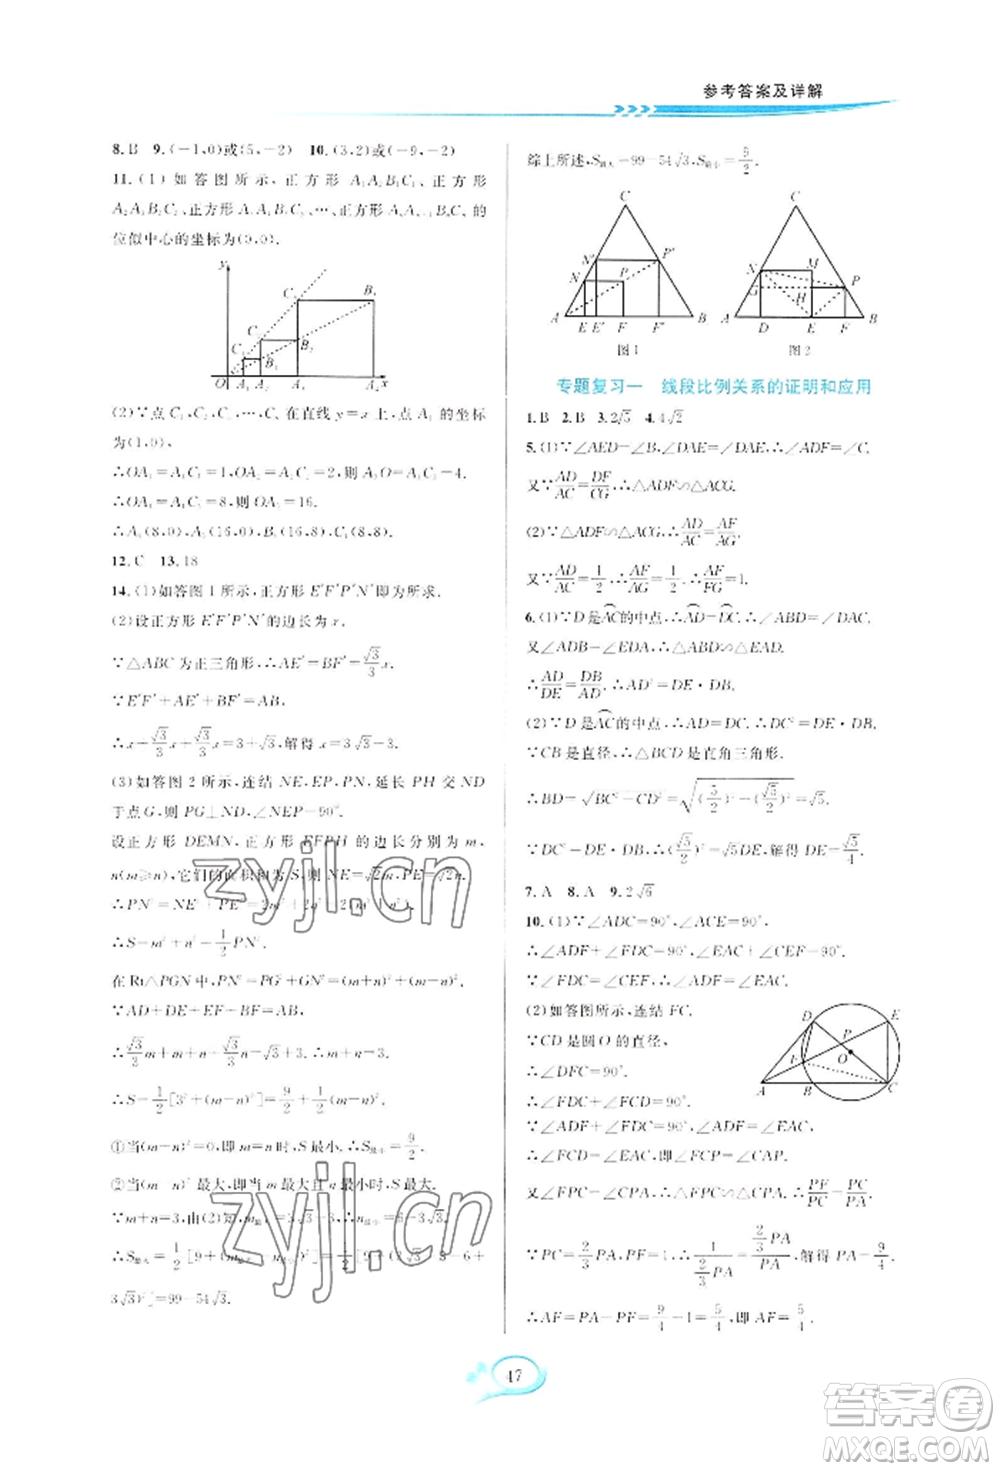 参考答案及详解
8.B 9.(-1,0)或(5,-2) 10.(3,2)或(-9,-2)
11.(1)如答图所示,正方形 A₁A₂B₁C₁、正方形
位似中心的坐标为(0,0).
y
C₃
B₃
C₂
B₂
C₁
B₁
O A₁ A₂ A₃ A₄ x
(2)∵点 C₁、C₂、C₃、C₄ 在直线 y=x 上,点 A₁ 的坐标
为(1,0),
∴OA₁=A₁C₁=1,OA₂=A₂C₂=2,则 OA₃=A₃C₃=4.
∴OA₄=A₄C₄=8,则 OA₅=16.
∴A₄(8,0),A₅(16,0),B₄(16,8),C₄(8,8).
12.C 13.18
14.(1)如答图 1 所示,正方形 E'F'P'N' 即为所求.
(2)设正方形 E'F'P'N' 的边长为 x.
∵△ABC 为正三角形,∴AE'=BF'=√3/3 x.
∵E'F'+AE'+BF'=AB,
∴x+√3/3 x+√3/3 x=3+√3,解得 x=3√3-3.
(3)如答图 2 所示,连结 NE,EP,PN,延长 PH 交 ND
于点G,则 PG⊥ND,∠NEP=90°.
设正方形 DEMN、正方形 EFPH 的边长分别为 m,
n(m≥n),它们的面积和为 S,则 NE=√2m,PE=√2n.
∴PN²=NE²+PE²=2m²+2n²=2(m²+n²).
∴S=m²+n²=1/2 PN².
在 Rt△PGN 中,PN²=PG²+GN²=(m+n)²+(m-n)².
∵AD+DE+EF+BF=AB,
∴√3/3 m+m+n+√3/3 n=√3+3,∴m+n=3.
∴S=1/2[3²+(m-n)²]=9/2+1/2(m-n)².
①当(m-n)²=0,即 m=n 时,S 最小.∴S最小=9/2.
②当(m-n)²最大,即当 m 最大且 n 最小时,S 最大.
∵m+n=3,由(2)知,m最大=3√3-3,∴n最小=6-3√3.
∴S最大=1/2[9+(m最大-n最小)²]=1/2[9+(3√3-3-6+
3√3)²]=99-54√3.
综上所述,S最大=99-54√3,S最小=9/2.
C
N' P'
N P
A E E' F F' B
图1
C
N M
G H P
A D E F B
图2
专题复习一 线段比例关系的证明和应用
1.B 2.B 3.2√5 4.4√2
5.(1)∵∠AED=∠B,∠DAE=∠DAE,∴∠ADF=∠C.
又∵AD/AC=DF/CG,∴△ADF∽△ACG.
(2)∵△ADF∽△ACG,∴AD/AC=AF/AG.
又∵AD/AC=1/2,∴AF/AG=1/2,∴AF/FG=1.
6.(1)∵D 是AC的中点,∴AD=DC.∴∠ABD=∠DAC.
又∠ADB=∠EDA,∴△ABD∽△EAD.
∴AD/DE=DB/AD.∴AD²=DE·DB.
(2)∵D 是AC的中点,∴AD=DC.∴DC²=DE·DB.
∵CB 是直径,∴△BCD 是直角三角形.
∴BD=√(BC²-CD²)=√((5/2)²-(√5/2)²)=√5.
∵DC²=DE·DB,∴(√5/2)²=√5DE,解得 DE=√5/4.
7.A 8.A 9.2√6
10.(1)∵∠ADC=90°,∠ACE=90°,
∴∠ADF+∠FDC=90°,∠EAC+∠CEF=90°.
∵∠FDC=∠CEF,∴∠ADF=∠EAC.
(2)如答图所示,连结 FC.
∵CD 是圆 O 的直径,
∴∠DFC=90°.
∴∠FDC+∠DCF=90°.
∵∠ADF+∠FDC=90°,∠ADF=∠EAC,
∴∠FCD=∠EAC,即∠FCP=∠PAC.
又∵∠FPC=∠CPA,∴△FPC∽△CPA.∴PF/PC=PC/PA.
∵PC=2/3 PA,PF=1,∴1/(2/3 PA)=(2/3 PA)/PA,解得 PA=9/4.
∴AF=PA-PF=9/4-1=5/4,即 AF=5/4.
D E
P
F O
A B C
47
zyjl.cn
zyjl.cn
答案圈
MXQE.COM